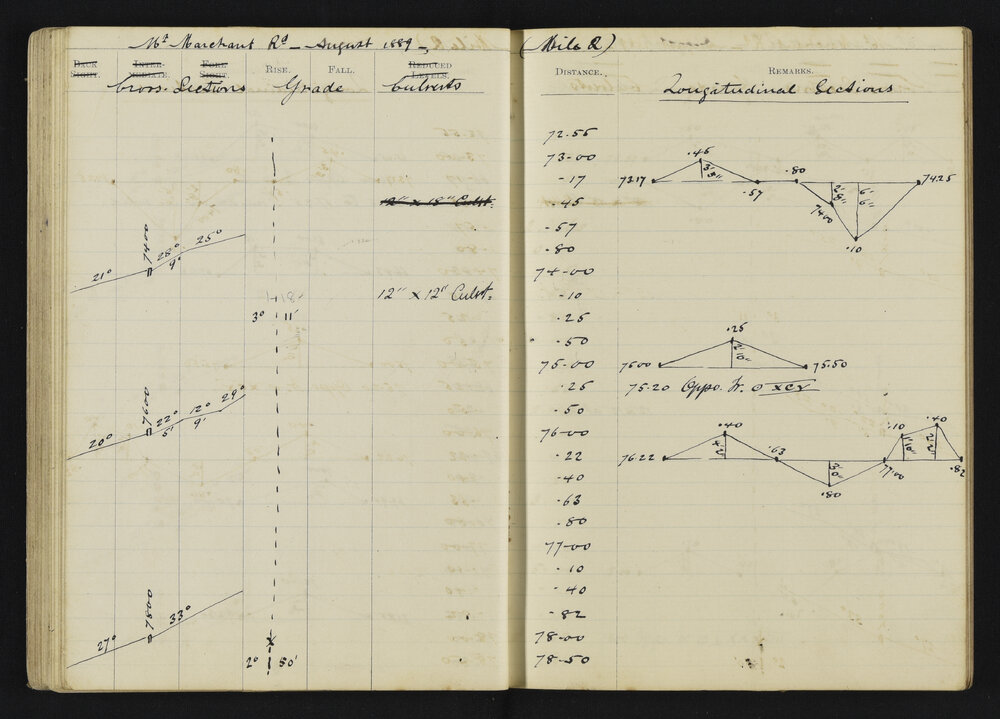 Mt Marchant Rd – August 1889 –
BACK SIGHT. INTER-MEDIATE. FORE SIGHT. RISE. FALL. REDUCED LEVELS.
Cross-Sections Grade Culverts
12" x 18" Culst.
7400
21° 28° 25°
9'
12" x 12" Culst.
3° 11'
7600
20° 22° 12° 29°
5' 9'
7800
27° 33°
2° 50'
(Mile 2)
DISTANCE. REMARKS.
Longitudinal Sections
72.55
73.00
.17
.45
.57
.80
74.00
.10
.25
.50
75.00
.25
.50
76.00
.22
.40
.63
.80
77.00
.10
.40
.82
78.00
78.50
73.17 .45 .57 .80 7400 .10 74.25
3' 3" 2' 8" 6' 6"
75.00 .25 75.50
2' 10"
75.20 Oppo. Tr. ⊙ XCV
76.22 .40 .63 .80 77.00 .10 .40 .82
1'10" 2'2"